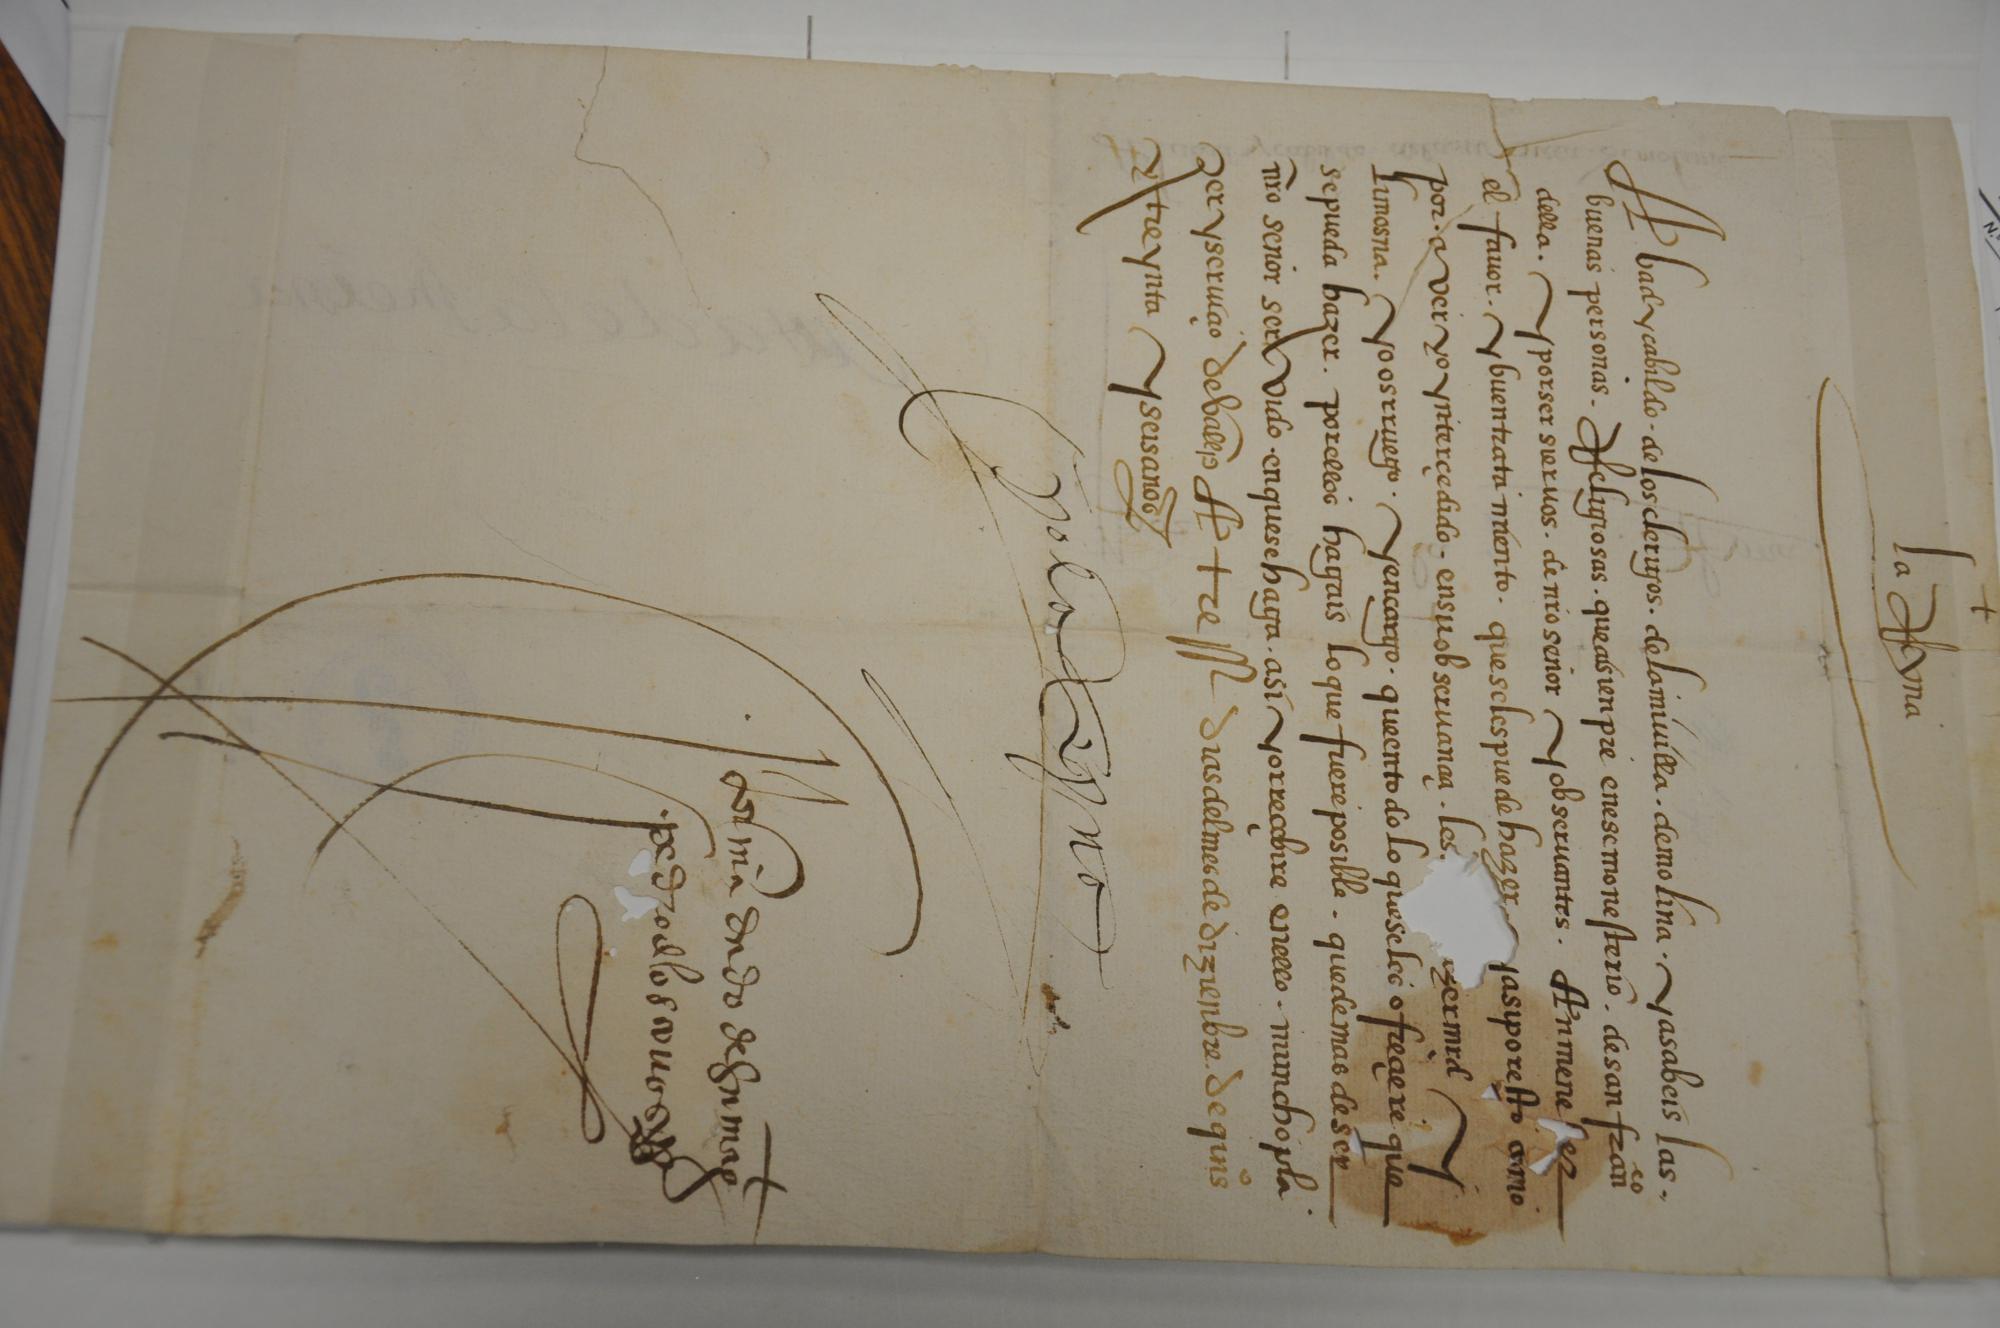 +
la Reyna
Abad y cabildo. de los clerigos. de la mi villa. de molina. ya sabeis las.
buenas personas. Religiosas. que asienpre en ese monesterio. de san franco
della. y por ser sieruos. de nro señor y obseruantes. An menester
el fauor. y buen tratamiento. que se les puede hazer y asi por esto como
por. aver yo yntercedido. en su obseruança. les. hazer mrd y
limosna. yo os ruego. y encargo. que en todo lo que se les ofreçiere que
se pueda hazer. por ellos hagais lo que fuere posible. que demas de ser
nro señor servido. en que se haga. asi yo rreçibire en ello. muncho pla
zer y seruiçio de balld A treze dias del mes de dizienbre. de qujos
y treynta y seis años
yo la Reyna
por mandado de su mat
pedro de los covos